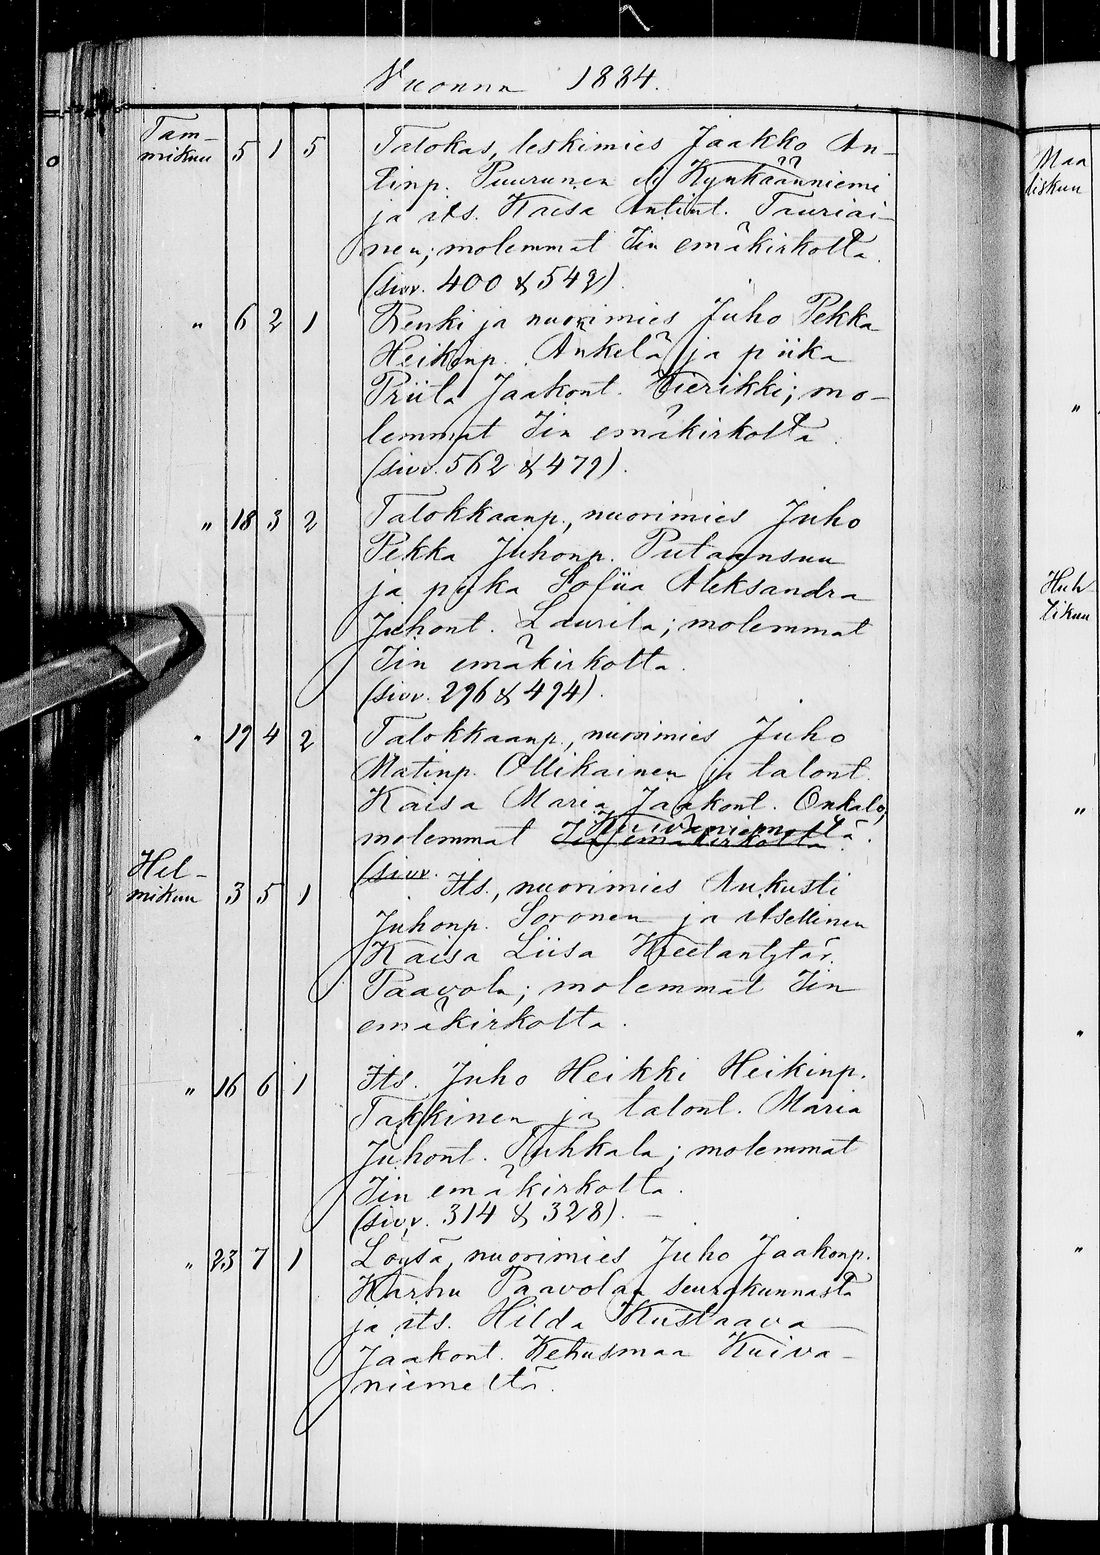 Vuonna 1884.
Tam-
mikuu 5 1 5 Talokas, leskimies Jaakko An-
tinp. Puurunen eli Kynkäänniemi
ja its. Kaisa Antint. Tauriai-
nen; molemmat Iin emäkirkolta.
(sivv. 400 & 542).
" 6 2 1 Renki ja nuorimies Juho Pekka
Heikinp. Änkelä ja piika
Priita Jaakont. Wierikki; mo-
lemmat Iin emäkirkolta.
(sivv. 562 & 479).
" 18 3 2 Talokkaanp., nuorimies Juho
Pekka Juhonp. Putaansuu
ja piika Sofiia Aleksandra
Juhont. Laurila; molemmat
Iin emäkirkolta.
(sivv. 296 & 494).
" 19 4 2 Talokkaanp., nuorimies Juho
Matinp. Ollikainen ja talont.
Kaisa Maria Jaakont. Onkalo;
Kuivaniemeltä
molemmat Iin emäkirkolta.
(sivv.
Hel-
mikuu 3 5 1 Its., nuorimies Aukusti
Juhonp. Soronen ja itsellinen
Kaisa Liisa Kreetantytär
Paavola; molemmat Iin
emäkirkolta.
" 16 6 1 Its. Juho Heikki Heikinp.
Takkinen ja talont. Maria
Juhont. Tuhkala; molemmat
Iin emäkirkolta.
(sivv. 314 & 328). —
" 23 7 1 Loysä, nuorimies Juho Jaakonp.
Karhu Paavolan seurakunnasta
ja its. Hilda Kustaava
Jaakont. Kehusmaa Kuiva-
niemeltä.
Maa
liskuu
"
Huh
tikuu
"
"
"